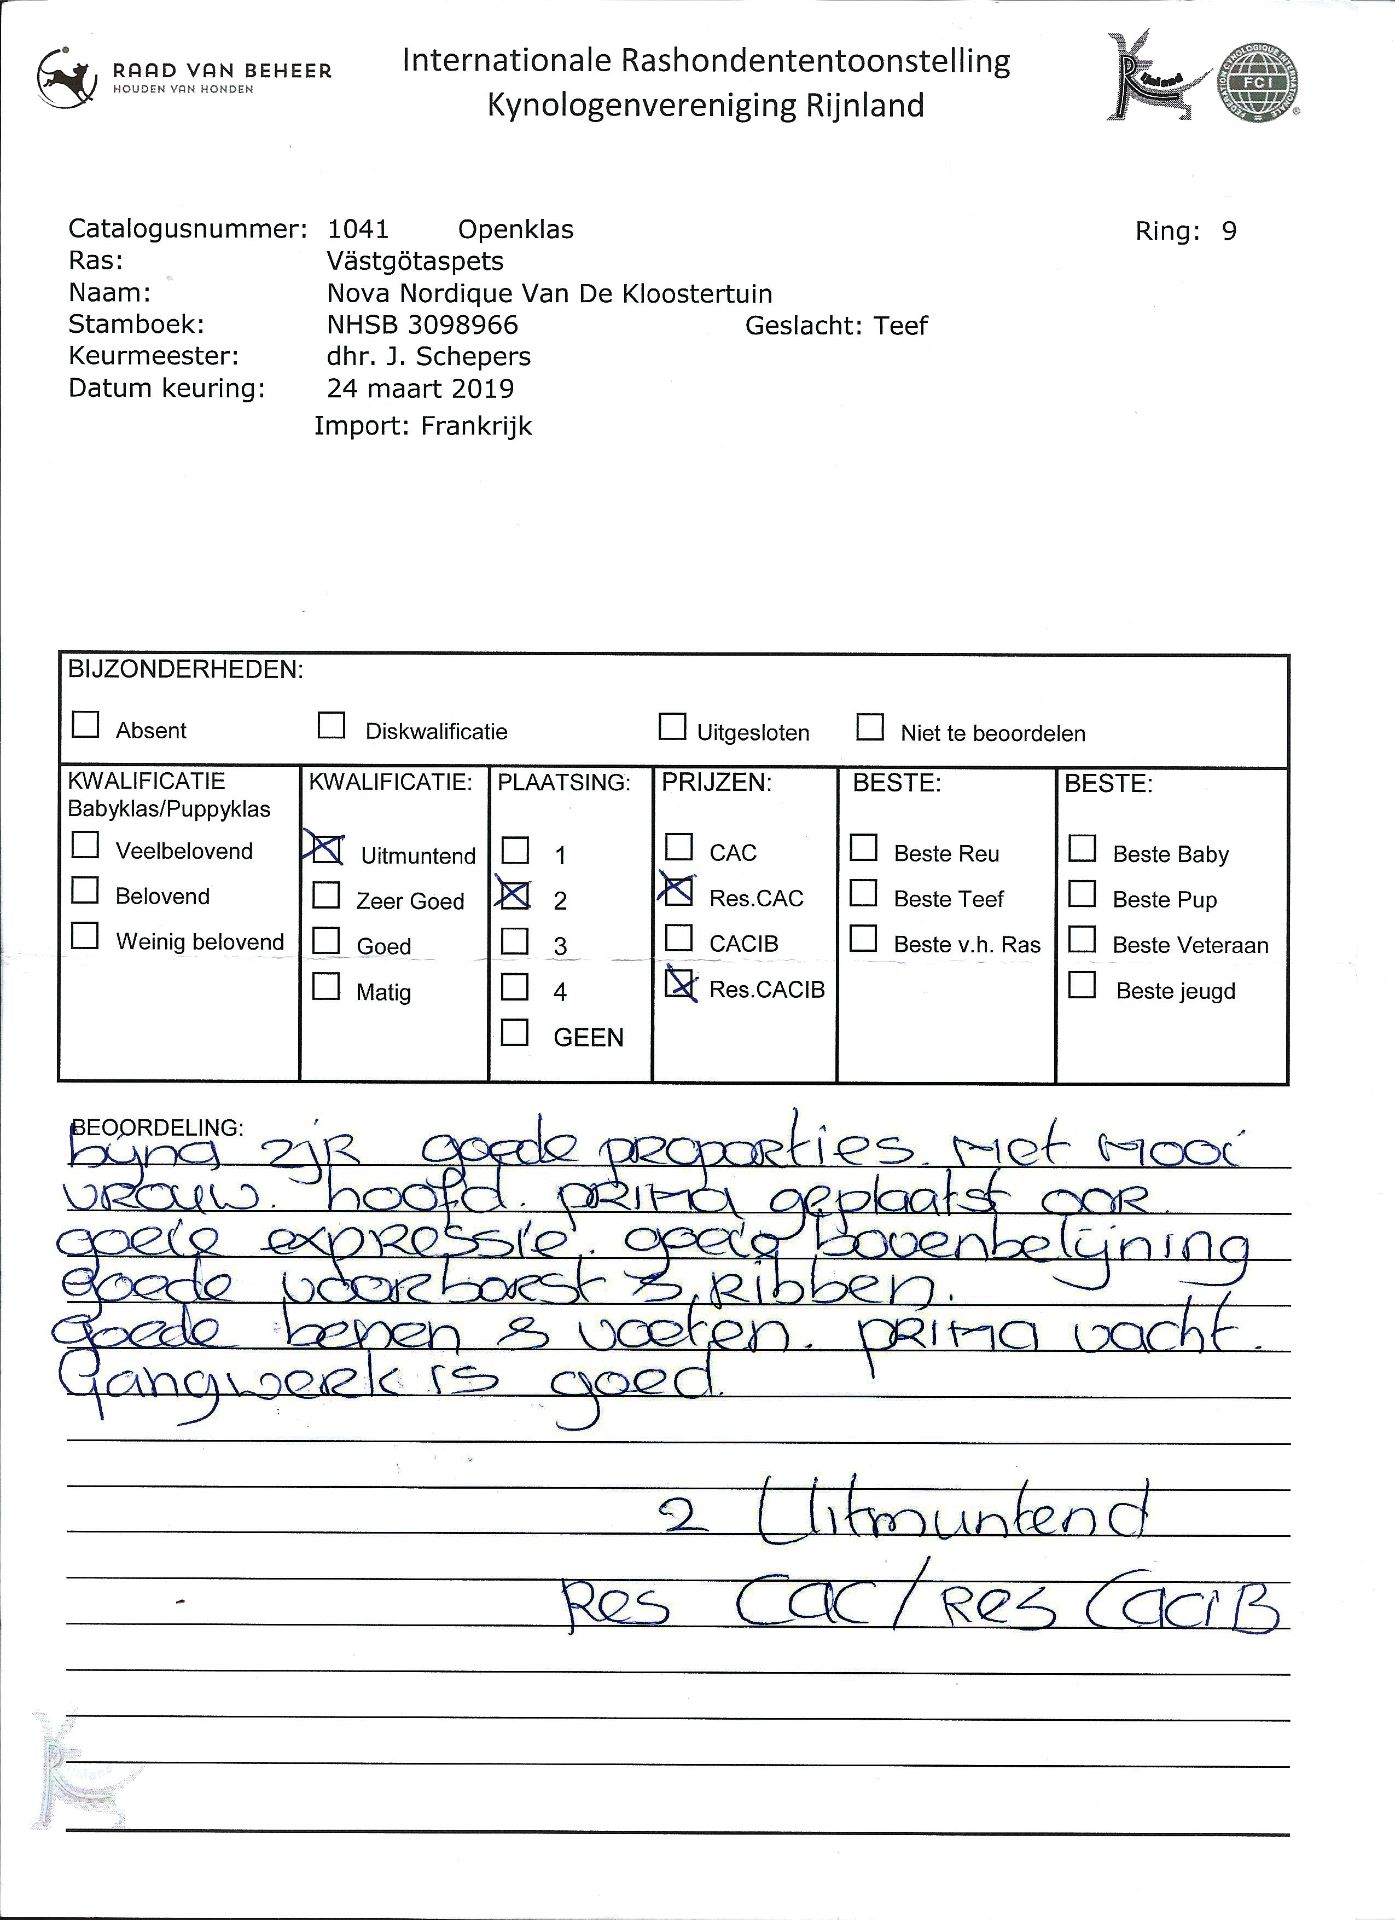 RAAD VAN BEHEER
HOUDEN VAN HONDEN
Internationale Rashondententoonstelling
Kynologenvereniging Rijnland
Rijnland
FEDERATION CYNOLOGIQUE INTERNATIONALE
FCI
®
Catalogusnummer: 1041 Openklas Ring: 9
Ras: Västgötaspets
Naam: Nova Nordique Van De Kloostertuin
Stamboek: NHSB 3098966 Geslacht: Teef
Keurmeester: dhr. J. Schepers
Datum keuring: 24 maart 2019
Import: Frankrijk
BIJZONDERHEDEN:
Absent Diskwalificatie Uitgesloten Niet te beoordelen
KWALIFICATIE KWALIFICATIE: PLAATSING: PRIJZEN: BESTE: BESTE:
Babyklas/Puppyklas
Veelbelovend Uitmuntend 1 CAC Beste Reu Beste Baby
Belovend Zeer Goed 2 Res.CAC Beste Teef Beste Pup
Weinig belovend Goed 3 CACIB Beste v.h. Ras Beste Veteraan
Matig 4 Res.CACIB Beste jeugd
GEEN
BEOORDELING:
bijna 2jR goede proporties. Met mooi
vrouw. hoofd. prima geplaatst oor.
goeie expressie. goeie bovenbelijning
goede voorborst & ribben.
goede benen & voeten. prima vacht.
Gangwerk is goed.
2 Uitmuntend
Res CAC/Res CACIB